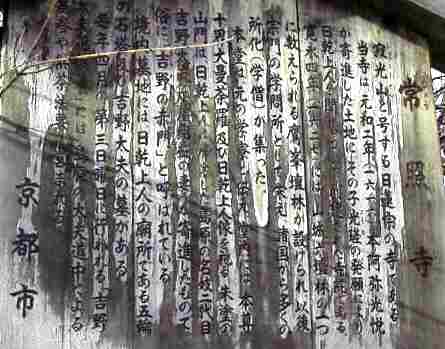 常照寺
寂光山と号する日蓮宗の寺である
当寺は元和二年(一六一六)本阿弥光悦
が寄進した土地にその子光瑳の発願により
日乾上人を
寛永四年(一六二七)には山城六檀林の一つ
に数えられる鷹峯檀林が設けられ以後
宗門の学問所として栄え諸国から多くの
所化(学僧)が集った
本堂は元の学寮で
十界大曼荼羅及び日乾上人像を祀る朱塗の
山門は日乾上人に帰依した京都の名妓二代目
吉野太夫
俗に吉野の赤門と呼ばれている
境内墓地には日乾上人の廟所である五輪
の石塔及び吉野太夫の墓がある
毎年四月の第三日曜日に行われる吉野
太夫道中による
京都市